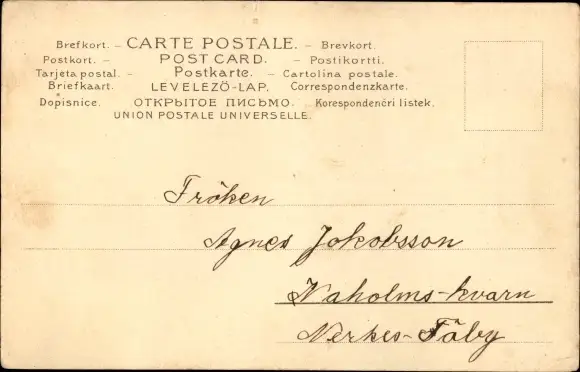 Brefkort. – CARTE POSTALE. – Brevkort.
Postkort. – POST CARD. – Postikortti.
Tarjeta postal. – Postkarte. – Cartolina postale.
Briefkaart. LEVELEZÖ-LAP. Correspondenzkarte.
Dopisnice. ОТКРЫТОЕ ПИСЬМО. Korespondenčri listek.
UNION POSTALE UNIVERSELLE.
Fröken
Agnes Jakobsson
Naholms-kvarn
Nerkes-Täby